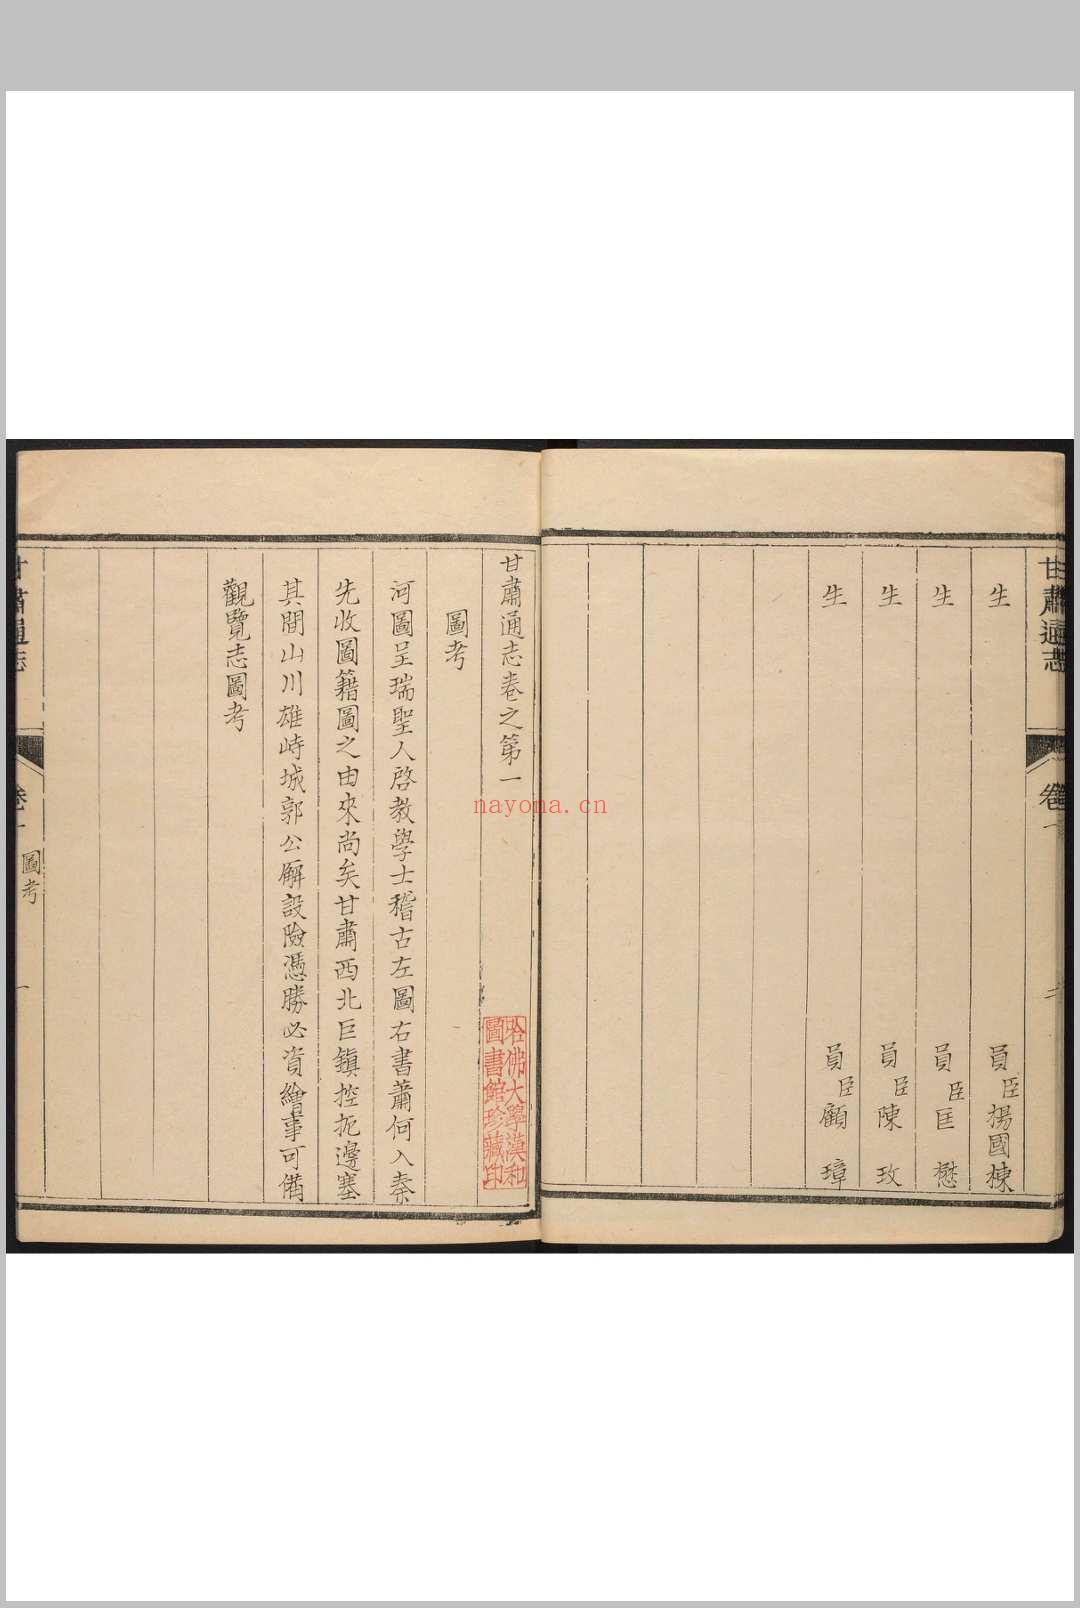 甘肅通志
卷
生 員臣楊國棟
生 員臣匡 懋
生 員臣陳 玫
生 員臣顧 璋
甘肅通志卷之第一
圖考
河圖呈瑞聖人啓教學士稽古左圖右書蕭何入秦
先收圖籍圖之由來尚矣甘肅西北巨鎮控扼邊塞
其間山川雄峙城郭公廨設險憑勝必資繪事可備
觀覽志圖考
哈佛大學漢和
圖書館珍藏印
甘肅通志
卷一 圖考 一
nayona.cn